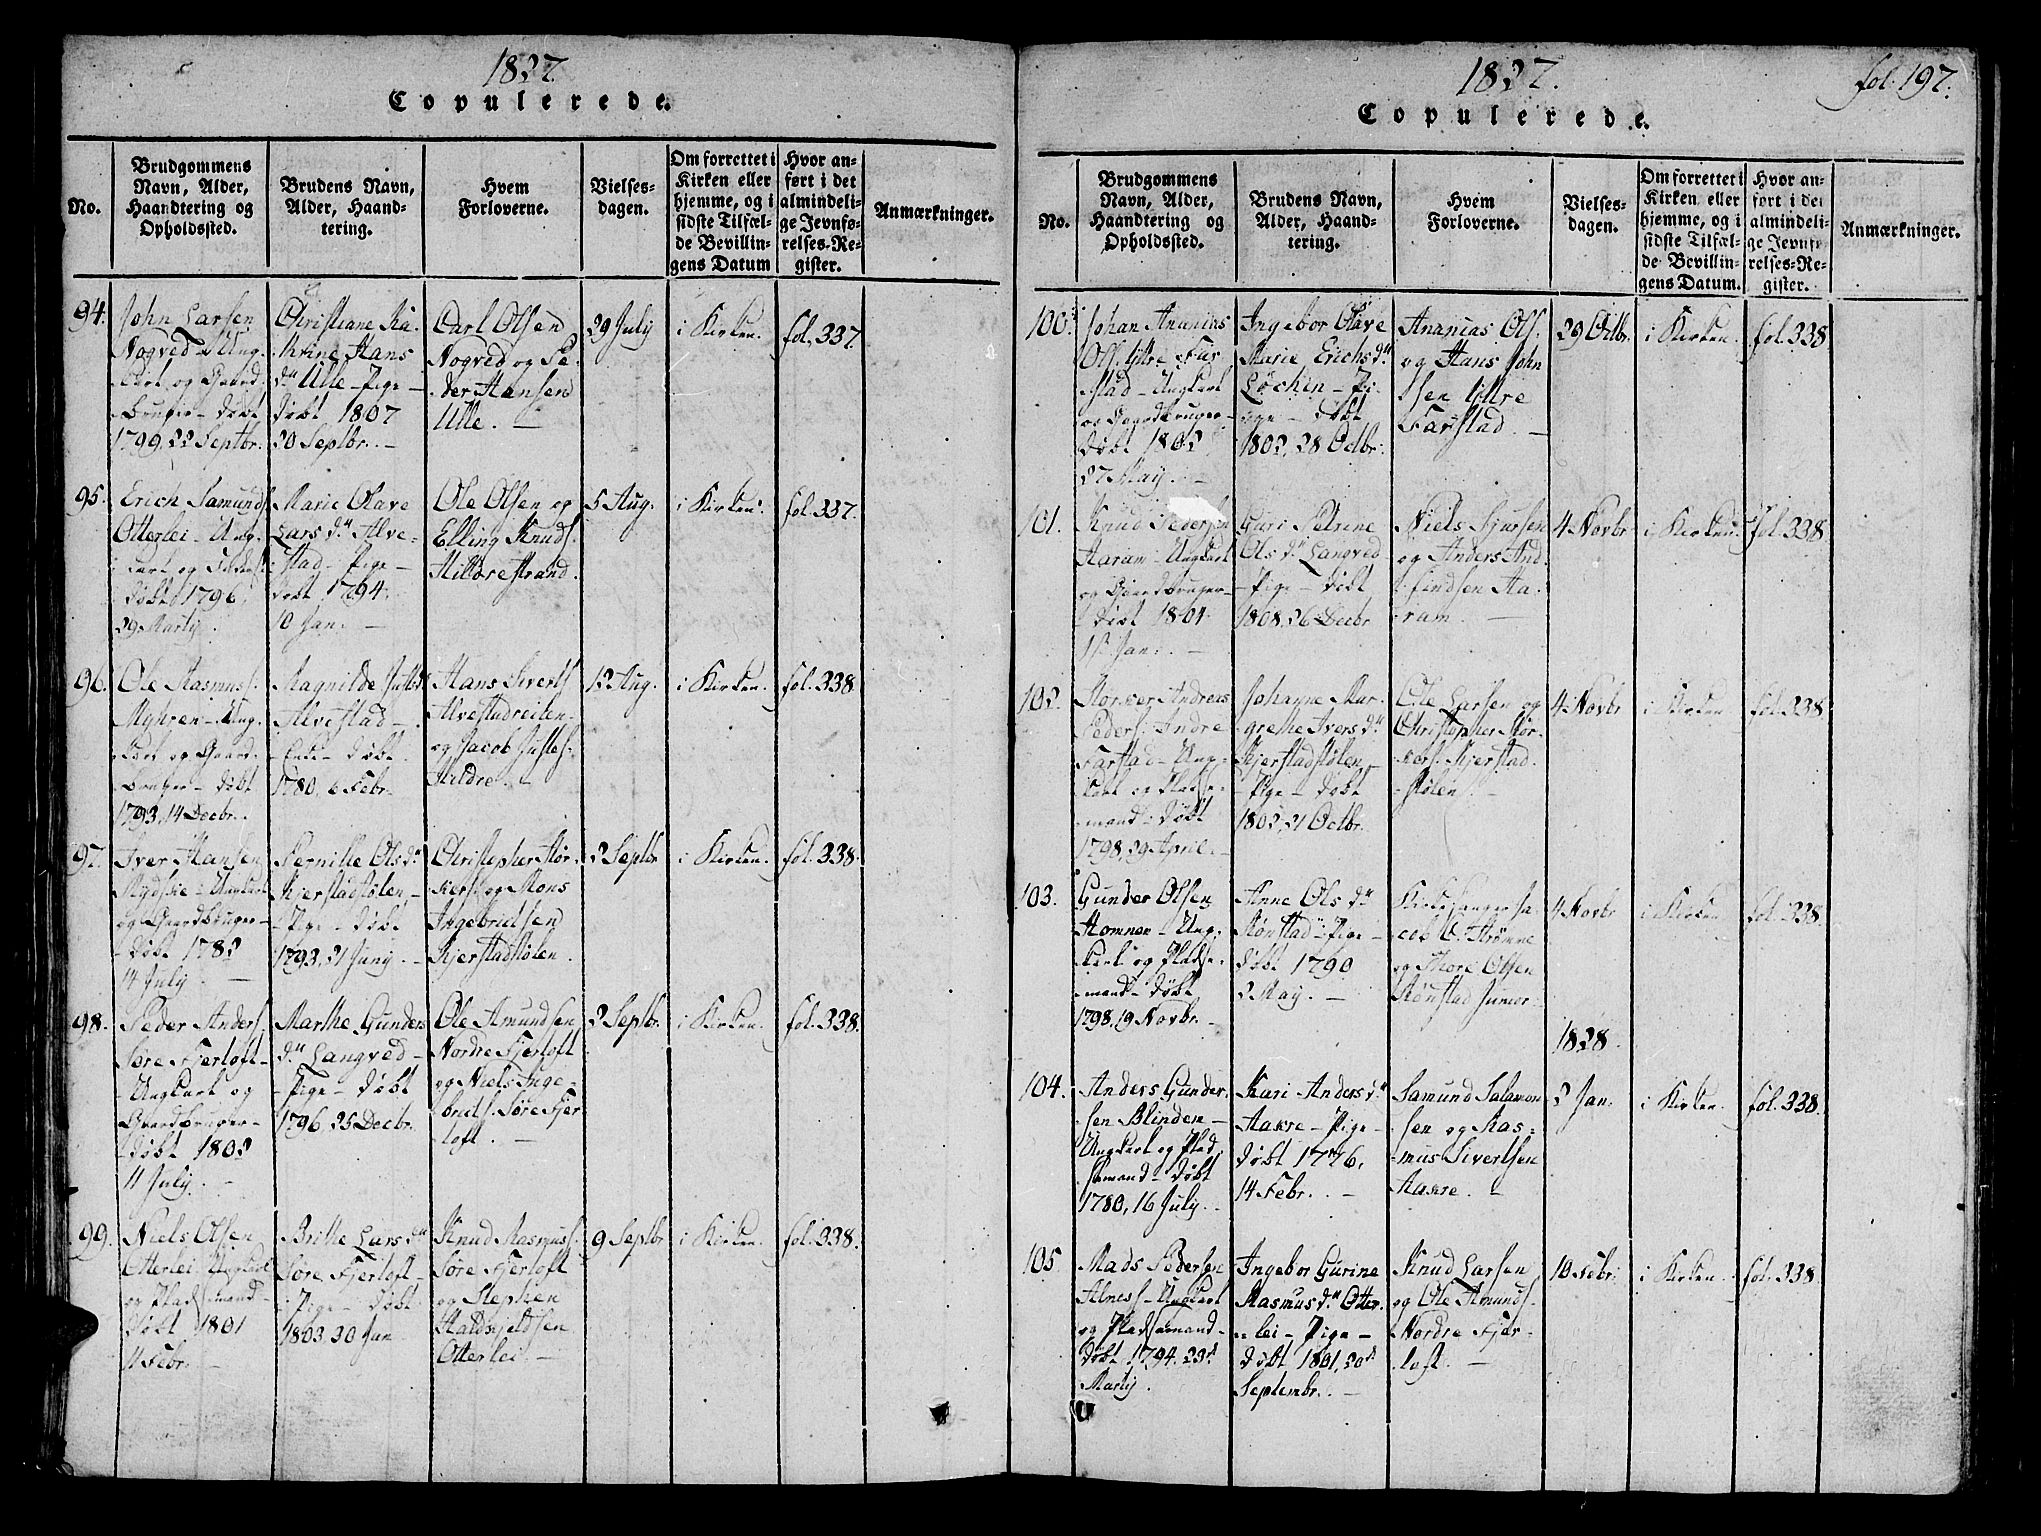 1827.
Copulerede.
No.
Brudgommens Navn, Alder, Haandtering og Opholdssted.
Brudens Navn, Alder, Haandtering.
Hvem Forloverne.
Vielsesdagen.
Om forrettet i Kirken eller hjemme, og i sidste Tilfælde Bevillingens Datum
Hvor anført i det almindelige Jevnførelses-Register.
Anmærkninger.
94.
John Larsen
Nogved - Ung-
-carl og Gaard-
-bruger - døbt
1799. 22 Septbr.
Christiane Ka-
-thrine Hans
dr. Ulle - Pige -
døbt 1807
20 Septbr. -
Carl Olsen
Nogved og Pe-
-der Hansen
Ulle. -
29 July
i Kirken.
fol. 337.
95.
Erich Samunds.
Otterlei - Ung-
-carl og
døbt 1796,
29 Martij.
Marie Olave
Lars dr. Alve-
-stad - Pige -
døbt 1794.
10 Jan. -
Ole Olsen og
Elling Knuds.
Hildrestrand.
5 Aug.
i Kirken.
fol. 337.
96.
Ole Rasmuss.
Myhren - Ung-
-carl og Gaard-
-bruger - døbt
1793, 14 Decbr.
Ragnilde
Alvestad -
Enke - døbt
1780, 6 Febr.
Hans Siverts.
Alvestadreiten
og Jacob Justes.
Hildre. -
12 Aug.
i Kirken.
fol. 338.
97.
Iver Hansen
- Ungkarl
og Gaardbruger -
- døbt 1782
14 July. -
Pernille Ols dr.
Kjerstadstølen -
- Pige - døbt
1793. 21 Juny. -
Christopher Stor-
-kers. og Mons
Ingebrietsen
Kjerstadstølen.
2 Septbr.
i Kirken.
fol. 338.
98.
Peder Anders.
Søre Fjerloft -
- Ungkarl og
Gaardbruger -
- døbt 1802
11 July. -
Marthe Gunders
dr. Langved -
- Pige - døbt
1796. 25 Decbr.
Ole Amundsen
Nordre Fjerloft
og Niels Inge-
-briets. Søre Fjer
-loft. -
2 Septbr.
i Kirken.
fol. 338.
99.
Niels Olsen
Otterlei - Ungkarl
og Pladsmand -
døbt 1801
11 Febr. -
Brithe Lars dr.
Søre Fjerloft -
- Pige - døbt
1803. 30 Jan
Knud Rasmuss.
Søre Fjerloft
og Stephen
Otterlei. -
9 Septbr
i Kirken.
fol. 338.
1827.
fol. 197.
Copulerede.
No.
Brudgommens Navn, Alder, Haandtering og Opholdssted.
Brudens Navn, Alder, Haandtering.
Hvem Forloverne.
Vielsesdagen.
Om forrettet i Kirken eller hjemme, og i sidste Tilfælde Bevillingens Datum.
Hvor anført i det almindelige Jevnførelses-Register.
Anmærkninger.
100.
Johan Ananias
Ols. Yttre Far
stad - Ungkarl
og Gaardbruger -
døbt 1802,
27 May. -
Ingebor Olave
Marie Erichs dr.
Løchen - Pi-
-ge - døbt
1802, 28 Octbr.
Ananias Ols.
og Hans John
sen Yttre
Farstad. -
29 Octbr.
i Kirken.
fol. 338
101.
Knud Pedersen
Aaram - Ungkarl
og Gaardbruger -
døbt 1804.
Jan. -
Guri Petrine
Ols dr. Langved
- Pige - døbt
1808. 26 Decbr
Niels Sjursen
og Anders And
findsen Aa-
-ram. -
4 Novbr
i Kirken.
fol. 338
102.
Storker Andreas
Peders. Indre
Farstad - Ung-
-karl og Plads-
-mand - døbt
1798, 29 April. -
Johanne Mar-
grethe Ivers dr.
Kjerstadstølen -
- Pige - døbt
1802, 21 Octbr.
Ole Larsen og
Christopher Stor-
-kers. Kjerstad-
-stølen. -
4 Novbr
i Kirken
fol. 338
103.
Gunder Olsen
Hamnen - Ung-
-karl og Plads-
-mand - døbt
1798, 19 Novbr. -
Anne Ols dr.
Rønstad - Pige -
døbt 1790
2 May. -
Kirkesanger Ja-
cob C. Strømme
og Thore Olsen
Rønstad Junior -
4 Novbr
i Kirken
fol. 338.
1828.
104.
Anders Gunder-
-sen Blinden -
Ungkarl og Plad
semand - døbt
1780, 16 July. -
Kari Anders dr.
Aakre - Pige -
døbt 1776,
14 Febr. -
Samund Salamon
sen og Ras-
-mus Sivertsen
Aakre. -
2 Jan.
i Kirken.
fol. 338.
105
Mads Pedersen
Alness - Ungkarl
og Pladsemand -
døbt 1794. 23d
Martij.
Ingebor Gurine
Rasmus dr. Otter-
-lei - Pige -
døbt 1801, 20d
Septembr. -
Knud Larsen
og Ole Amunds.
Nordre Fjer-
-loft. -
10 Febr.
i Kirken.
fol. 338.